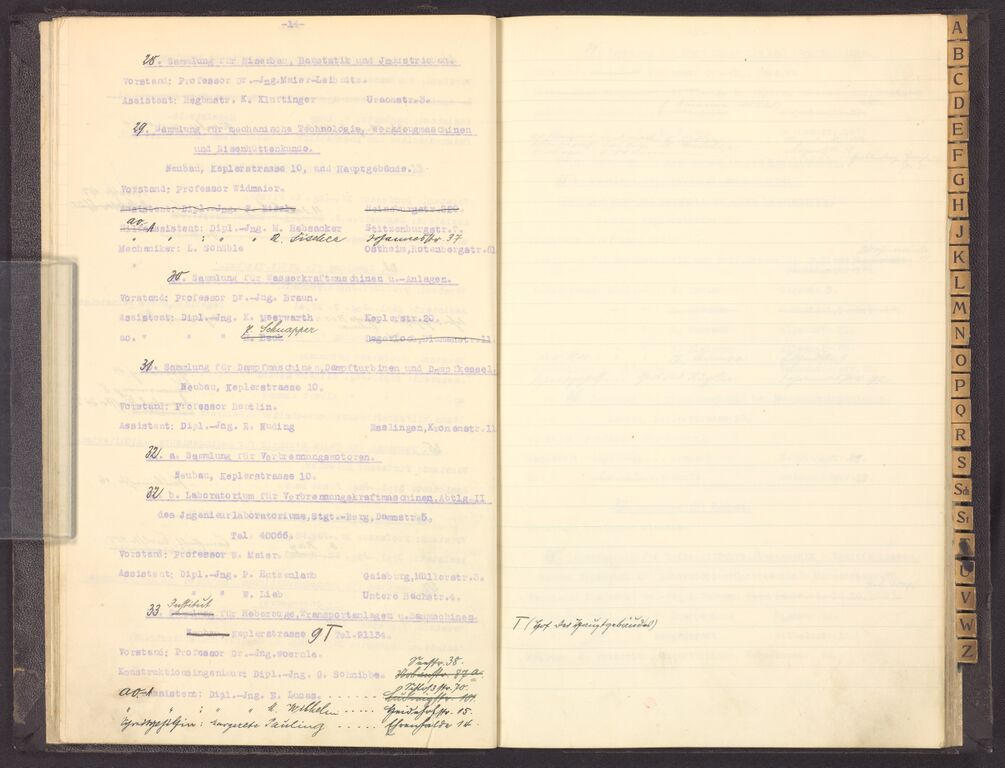 -14-
28. Sammlung für Eisenbau, Baustatik und Jndustriebau.
Vorstand: Professor Dr.-Jng. Maier-Leibnitz.
Assistent: Regbmstr. K. Kluftinger Urachstr.3.
29. Sammlung für mechanische Technologie, Werkzeugmaschinen
und Eisenhüttenkunde.
Neubau, Keplerstrasse 10, und Hauptgebäude.
Vorstand: Professor Widmaier.
Assistent: Dipl.-Jng.
ao. Assistent: Dipl.-Jng. M. Hebsacker Stitzenburgstr.7.
" " : " " Fischer Johannesstr. 37
Mechaniker: L. Schüble Ostheim, Rotenbergstr.61
30. Sammlung für Wasserkraftmaschinen u.-Anlagen.
Vorstand: Professor Dr.-Jng. Braun.
Assistent: Dipl.-Jng. K. Meerwarth Keplerstr.20.
ao. " " " Schnapper
Degerloch, Blumenstr.11
31. Sammlung für Dampfmaschinen, Dampfturbinen und Dampfkessel.
Neubau, Keplerstrasse 10.
Vorstand: Professor Bantlin.
Assistent: Dipl.-Jng. E. Nuding Esslingen, Kronenstr.11
32. a. Sammlung für Verbrennungsmotoren.
Neubau, Keplerstrasse 10.
32 b. Laboratorium für Verbrennungskraftmaschinen, Abtlg. II
des Jngenieurlaboratoriums, Stgt.-Berg, Dammstr.
Tel. 40066.
Vorstand: Professor W. Maier.
Assistent: Dipl.-Jng. P. Hutzenlaub Gaisburg, Müllerstr.3.
" " W. Lieb Untere Bachstr.4.
Institut
33. Sammlung für Hebezeuge, Transportanlagen u. Baumaschinen
Neubau, Keplerstrasse 9 T Tel.21134.
Vorstand: Professor Dr.-Jng. Woernle.
Seestr. 38.
Konstruktionsingenieur: Dipl.-Jng. G. Schnibbe. 87 a.
Schloßstr. 70.
ao. Assistent: Dipl.-Jng. E. Lucas. Ludwigstr. 101.
" " : " " Wilhelm ..... Heidehofstr. 15.
Margarete Päuling ..... Ehrenhalde 14.
T (Hof des Hauptgebäudes)
A
B
C
D
E
F
G
H
J
K
L
M
N
O
P
Q
R
S
Sch
St
T
U
V
W
Z